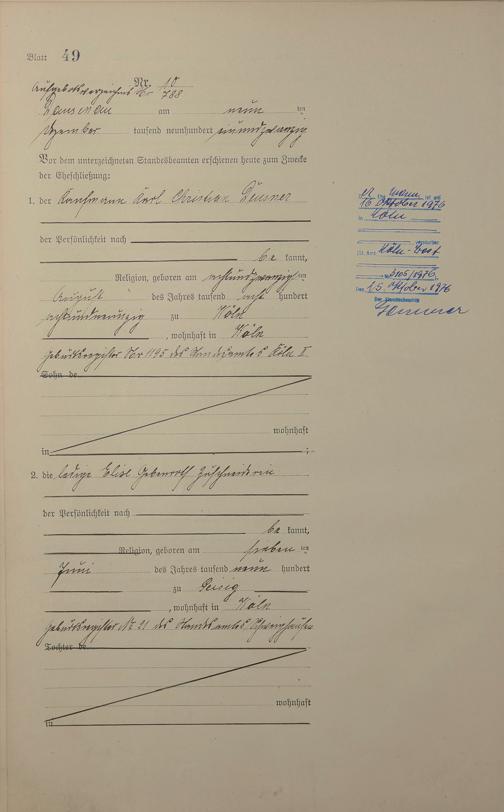 Blatt 49
Nr. 10
Aufgebotsverzeichnis Nr 788
am neun ten
Dezember tausend neunhundert einundzwanzig
Vor dem unterzeichneten Standesbeamten erschienen heute zum Zwecke
der Eheschließung:
1. der Kaufmann Karl Christian
der Persönlichkeit nach
be kannt,
Religion, geboren am achtundzwanzig ten
August des Jahres tausend acht hundert
achtundneunzig zu Köln
, wohnhaft in Köln
Geburtsregister Nr 1195 des Standesamtes Köln I
Sohn de
wohnhaft
in
2. die ledige Elise Zuschneiderin
der Persönlichkeit nach
be kannt,
Religion, geboren am sieben ten
Juni des Jahres tausend neun hundert
zu
, wohnhaft in Köln
Geburtsregister Nr 21 des Standesamtes
Tochter de
wohnhaft
in
Ehe Mann ist am
16. Oktober 1976
in Köln
verstorben
Köln-
3105/1976
Den 15. Oktober 1976
Der Standesbeamte